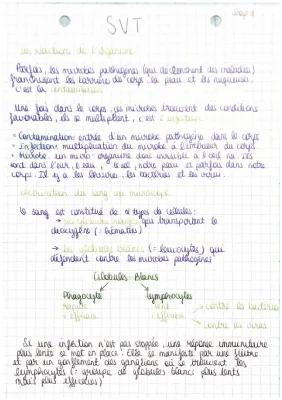 SVT
Les réactions de l'organisme
Parfois, les microbes pathogènes (qui déclenchent des maladies)
franchissent les barrières du corps : la peau et les muqueuses,
c'est la contamination.
Une fois dans le corps, ces microbes trouvent des conditions
favorables, ils se multiplient, c'est l'infection.
Contamination : entrée d'un microbe pathogène dans le corps
Infection : multiplication du microbe à l'intérieur du corps
Microbe : un micro-organisme invisible à l'oeil nu. Ils
sont dans l'air, l'eau, le sol, notre peau et parfois dans notre
corps. Il y a les levures, les bactéries et les virus.
Observation du sang au microscope
Le sang est constitué de types de cellules :
→ les globules rouges qui transportent le
dioxygène (= hématies)
→ les globules blancs (= leucocytes) qui
défendent contre les microbes pathogènes
Globules Blancs
Phagocyte
lymphocytes
rapide
lent
efficace
efficace
→ contre les bactéries
contre les virus
Si une infection n'est pas stoppée, une réponse immunitaire
plus lente se met en place. Elle se manifeste par une fièvre
et par un gonflement des ganglions où se trouvent les
lymphocytes (= groupe de globules blancs plus lents
mais plus efficaces)